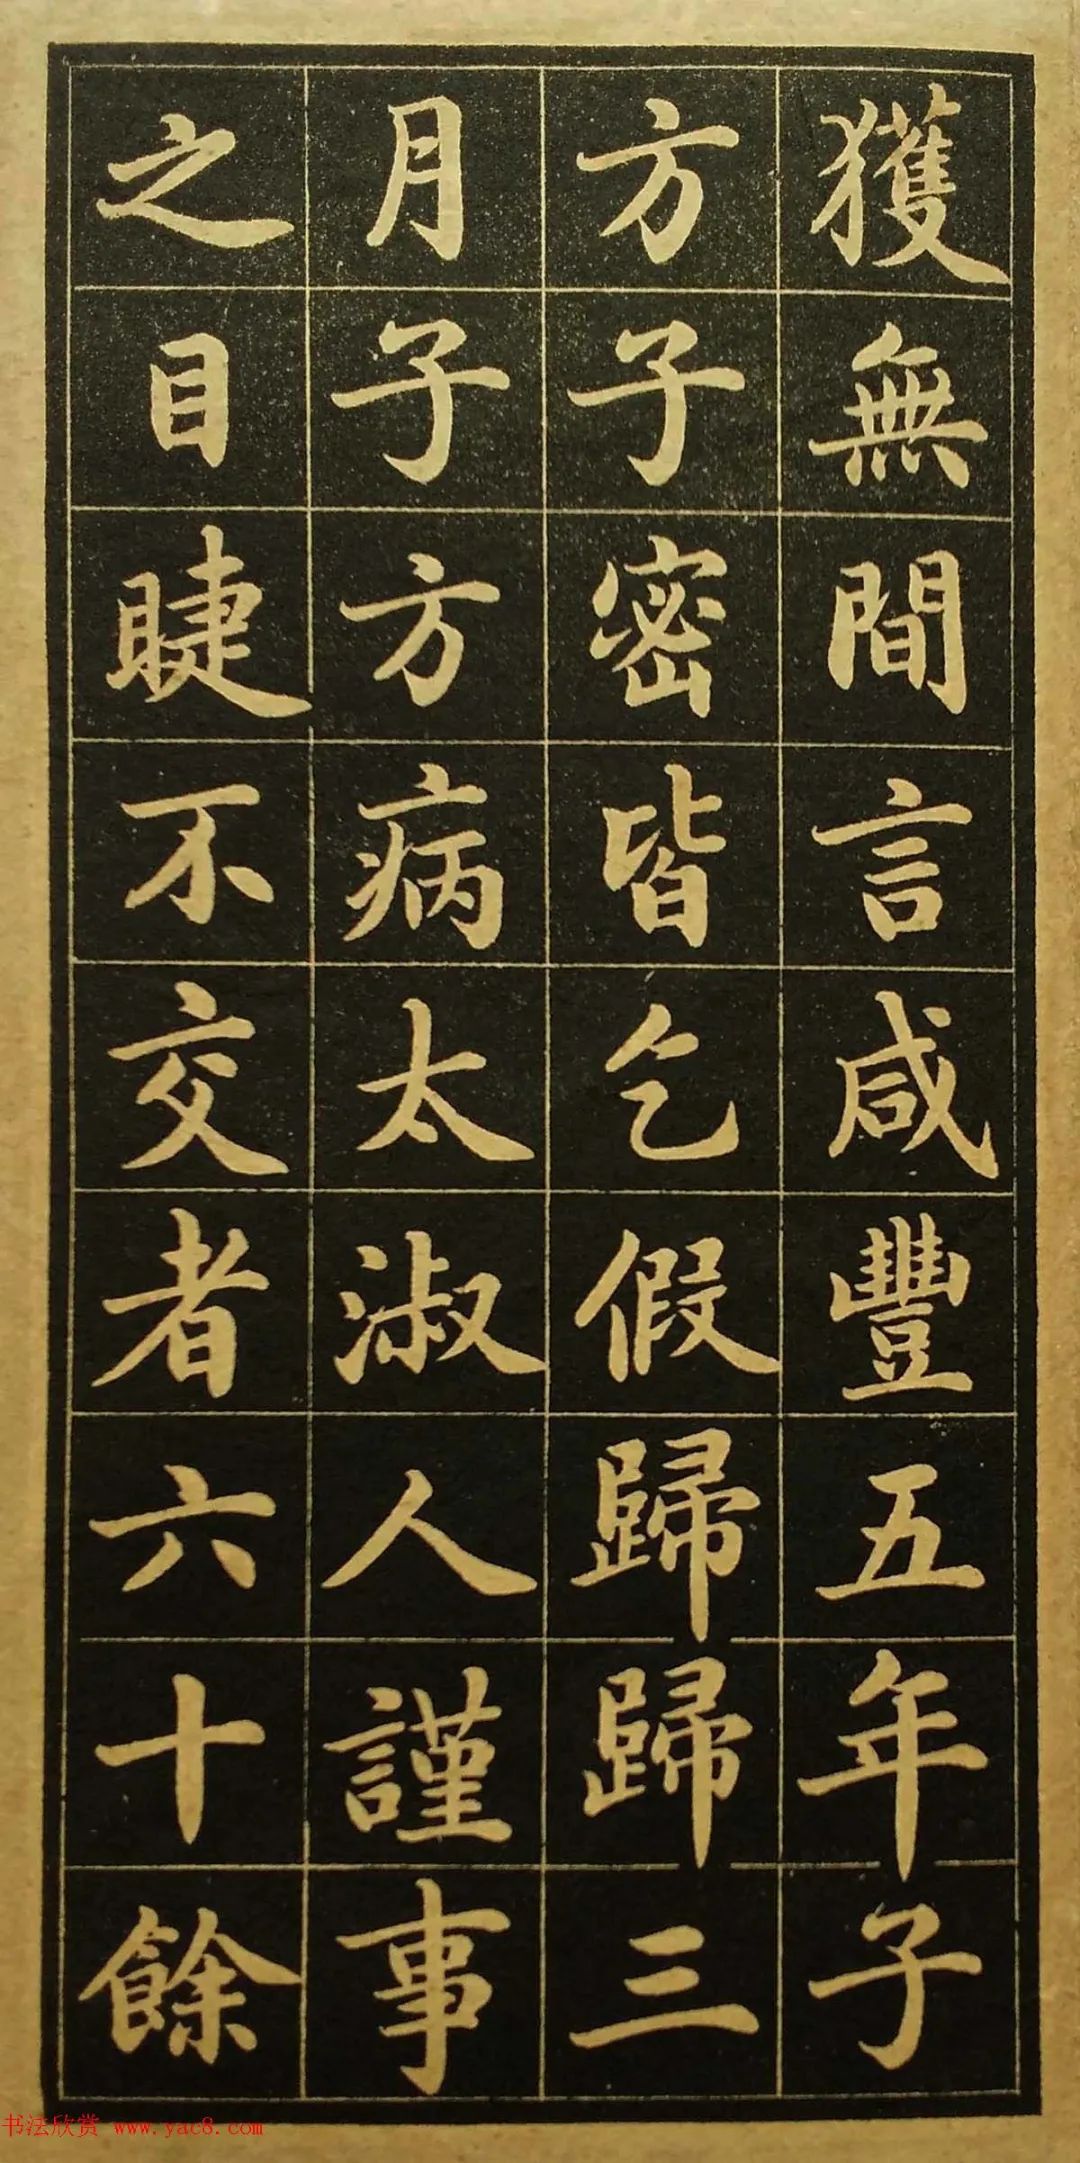 獲無間言咸豐五年子
方子密皆乞假歸歸三
月子方病太淑人謹事
之目睫不交者六十餘
书法欣赏 www.yac8.com